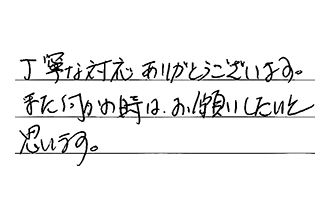 丁寧な対応ありがとうございます。
また何かの時は、お願いしたいと
思います。